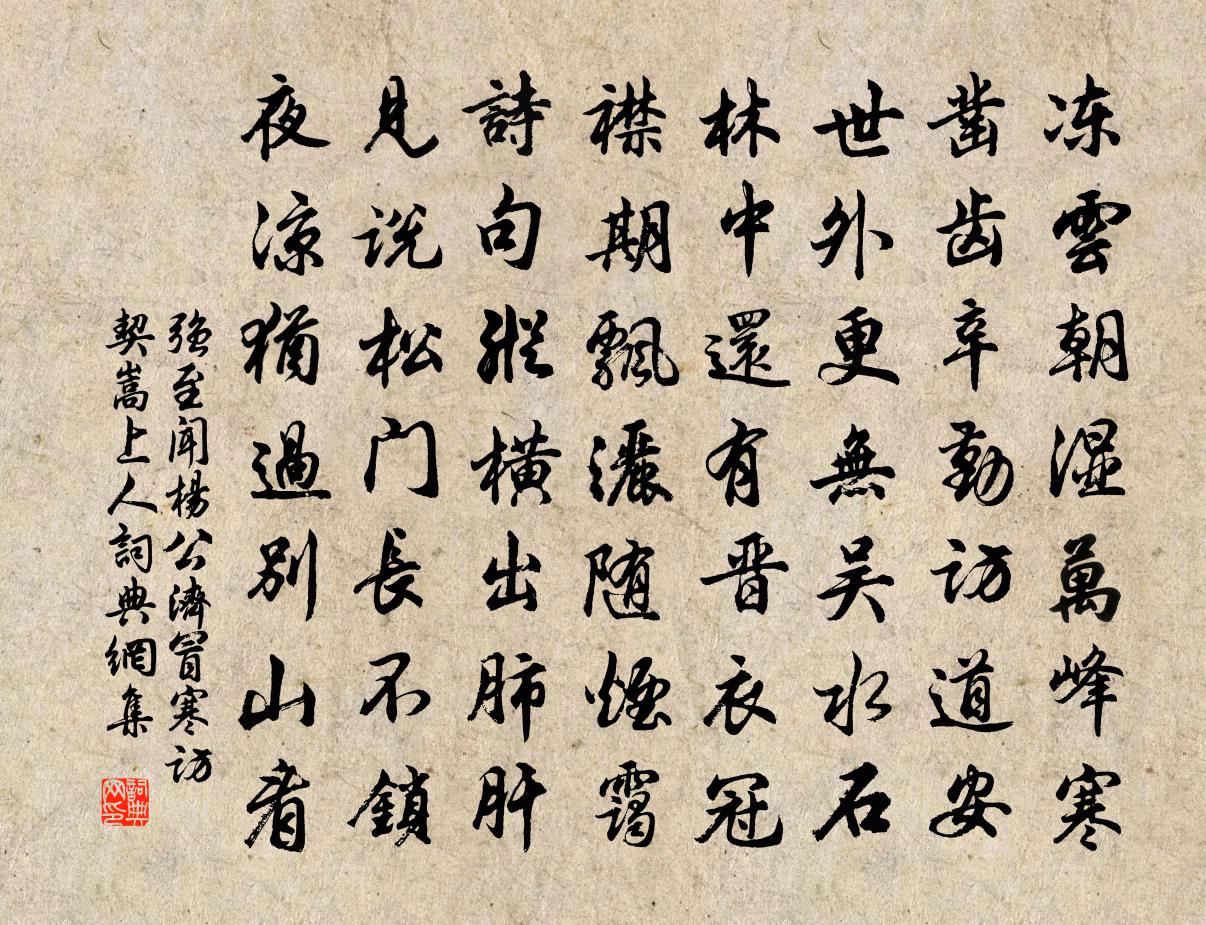 冻雲朝湿萬峰寒
凿齿辛勤访道安
世外更無吴水石
林中還有晋衣冠
襟期飄灑随煙靄
詩句縱横出肺肝
見说松门長不鎖
夜涼猶過別山看
强至闻楊公濟冒寒访
契嵩上人詞典網集
詞典网印